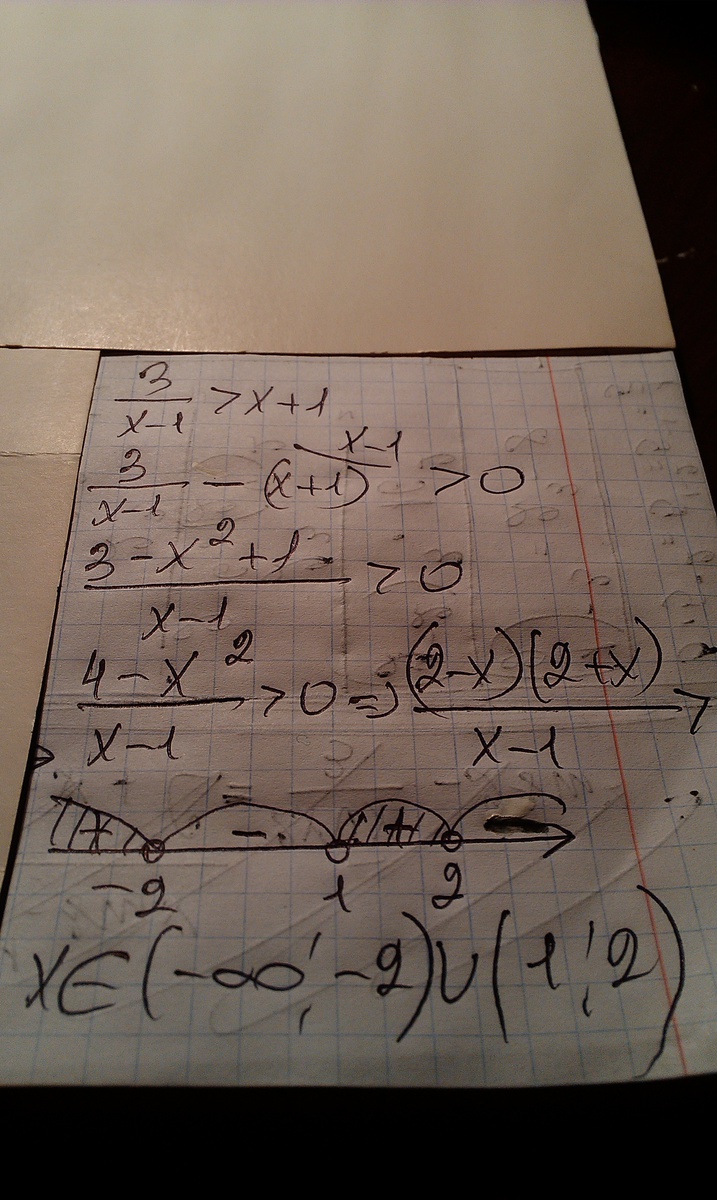 3/(x-1) > x+1
3/(x-1) - (x+1) x-1 > 0
(3-x²+1)/(x-1) > 0
(4-x²)/(x-1) > 0 => (2-x)(2+x)/(x-1) >
+ - + -
-2 1 2
x∈(-∞;-2)∪(1;2)